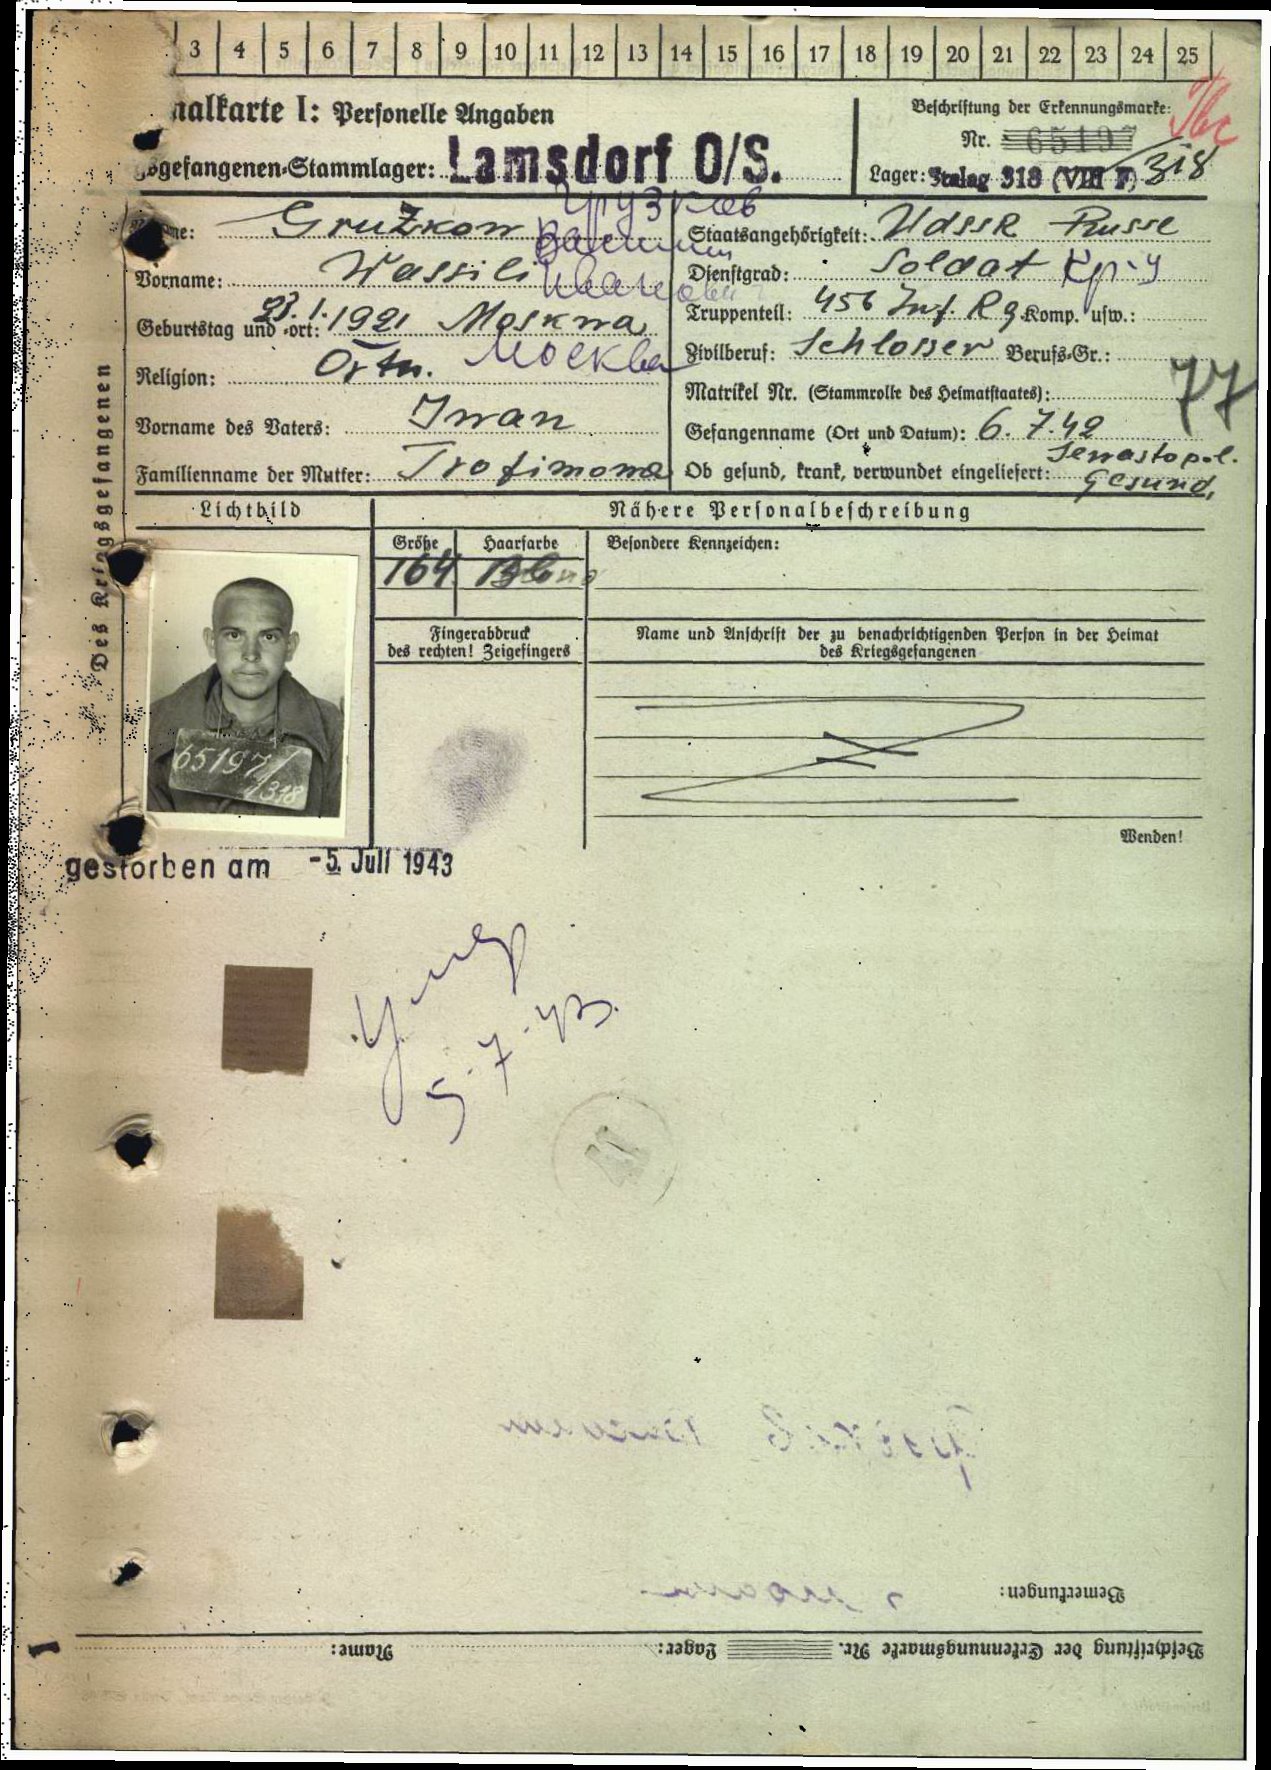 3 4 5 6 7 8 9 10 11 12 13 14 15 16 17 18 19 20 21 22 23 24 25
nalkarte I: Personelle Angaben
Beschriftung der Erkennungsmarke:
Tbc
Nr. 65197
sgefangenen-Stammlager: Lamsdorf O/S.
Lager: Stalag 318 (VIII F) 318
Грузков
me: Gružkow
Василий
Staatsangehörigkeit: UdSSR Russe
Vorname: Wassili
Иванович
Dienstgrad: Soldat Кр-ц
Geburtstag und -ort: 23.1.1921 Moskwa
Москва
Truppenteil: 456 Inf. Rg. Komp. usw.:
Religion: Ortn.
Zivilberuf: Schlosser Berufs-Gr.:
Matrikel Nr. (Stammrolle des Heimatstaates):
77
Vorname des Vaters: Iwan
Gefangenname (Ort und Datum): 6.7.42
Sewastopol.
Familienname der Mutter: Trofimowa
Ob gesund, krank, verwundet eingeliefert: Gesund,
Des Kriegsgefangenen
Lichtbild
Nähere Personalbeschreibung
Größe Haarfarbe Besondere Kennzeichen:
164 Blond
Fingerabdruck
des rechten! Zeigefingers
Name und Anschrift der zu benachrichtigenden Person in der Heimat
des Kriegsgefangenen
65197/
318
Wenden!
gestorben am -5. Juli 1943
Умер
5.7.43.
Bemerkungen:
Beschriftung der Erkennungsmarke Nr. Lager: Name: